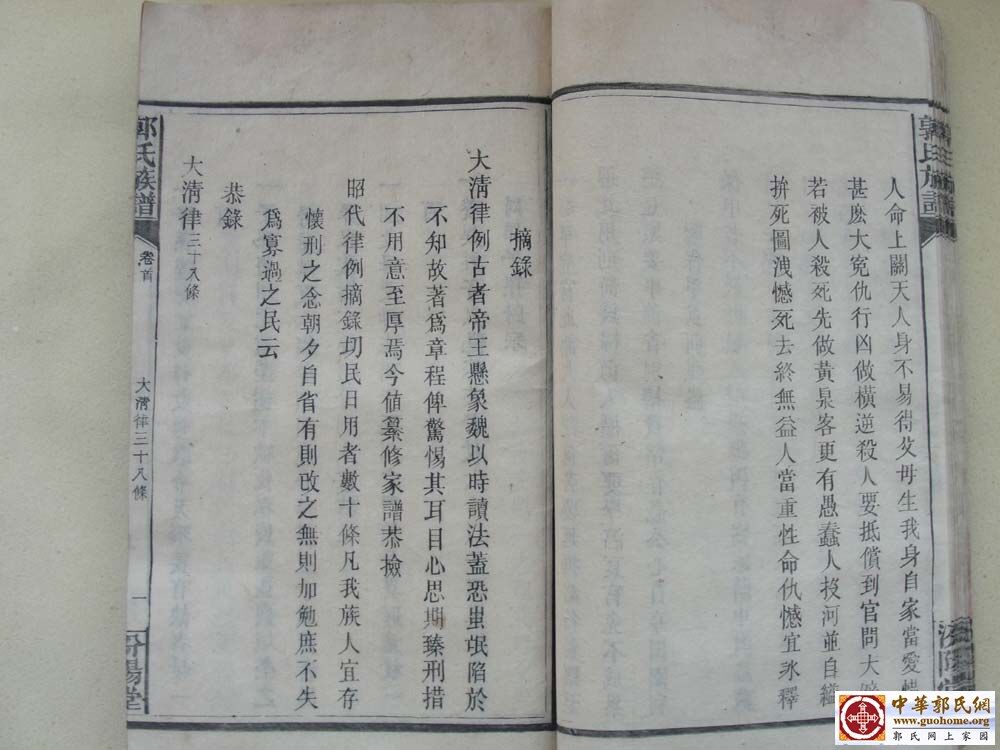 郭氏族譜
人命上關天人身不易得父母生我身自家當愛惜
甚麽大寃仇行凶做橫逆殺人要抵償到官問大
若被人殺死先做黃泉客更有愚蠢人投河並自縊
拚死圖洩憾死去終無益人當重性命仇憾宜氷釋
摘錄
大淸律例古者帝王懸象魏以時讀法蓋恐蚩氓陷於
不知故著爲章程俾驚惕其耳目心思期臻刑措
不用意至厚焉今値纂修家譜恭撿
昭代律例摘錄切民日用者數十條凡我族人宜存
懷刑之念朝夕自省有則改之無則加勉庶不失
爲寡過之民云
恭錄
大淸律三十八條
郭氏族譜
卷首
大淸律三十八條
一
汾陽堂
中華郭氏網
www.guohome.org
郭氏网上家園